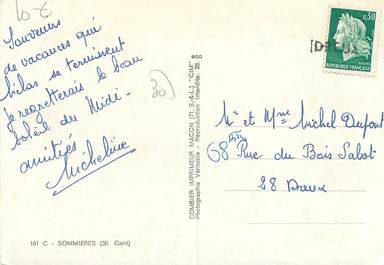 10 €
Souvenirs
de vacances qui
hélas se terminent
je regretterais le beau
soleil du Midi.
amitiés
Micheline
30
101 C - SOMMIERES (30. Gard)
eco
COMBIER IMPRIMEUR MACON (71. S.-&-L.) "CIM"
Photographie Véritable - Reproduction Interdite. 28.
0,30
REPUBLIQUE FRANCAISE
DREUX
Mr et Mme Michel Dupont
68 Bis Rue du Bois Sabot
28 Dreux